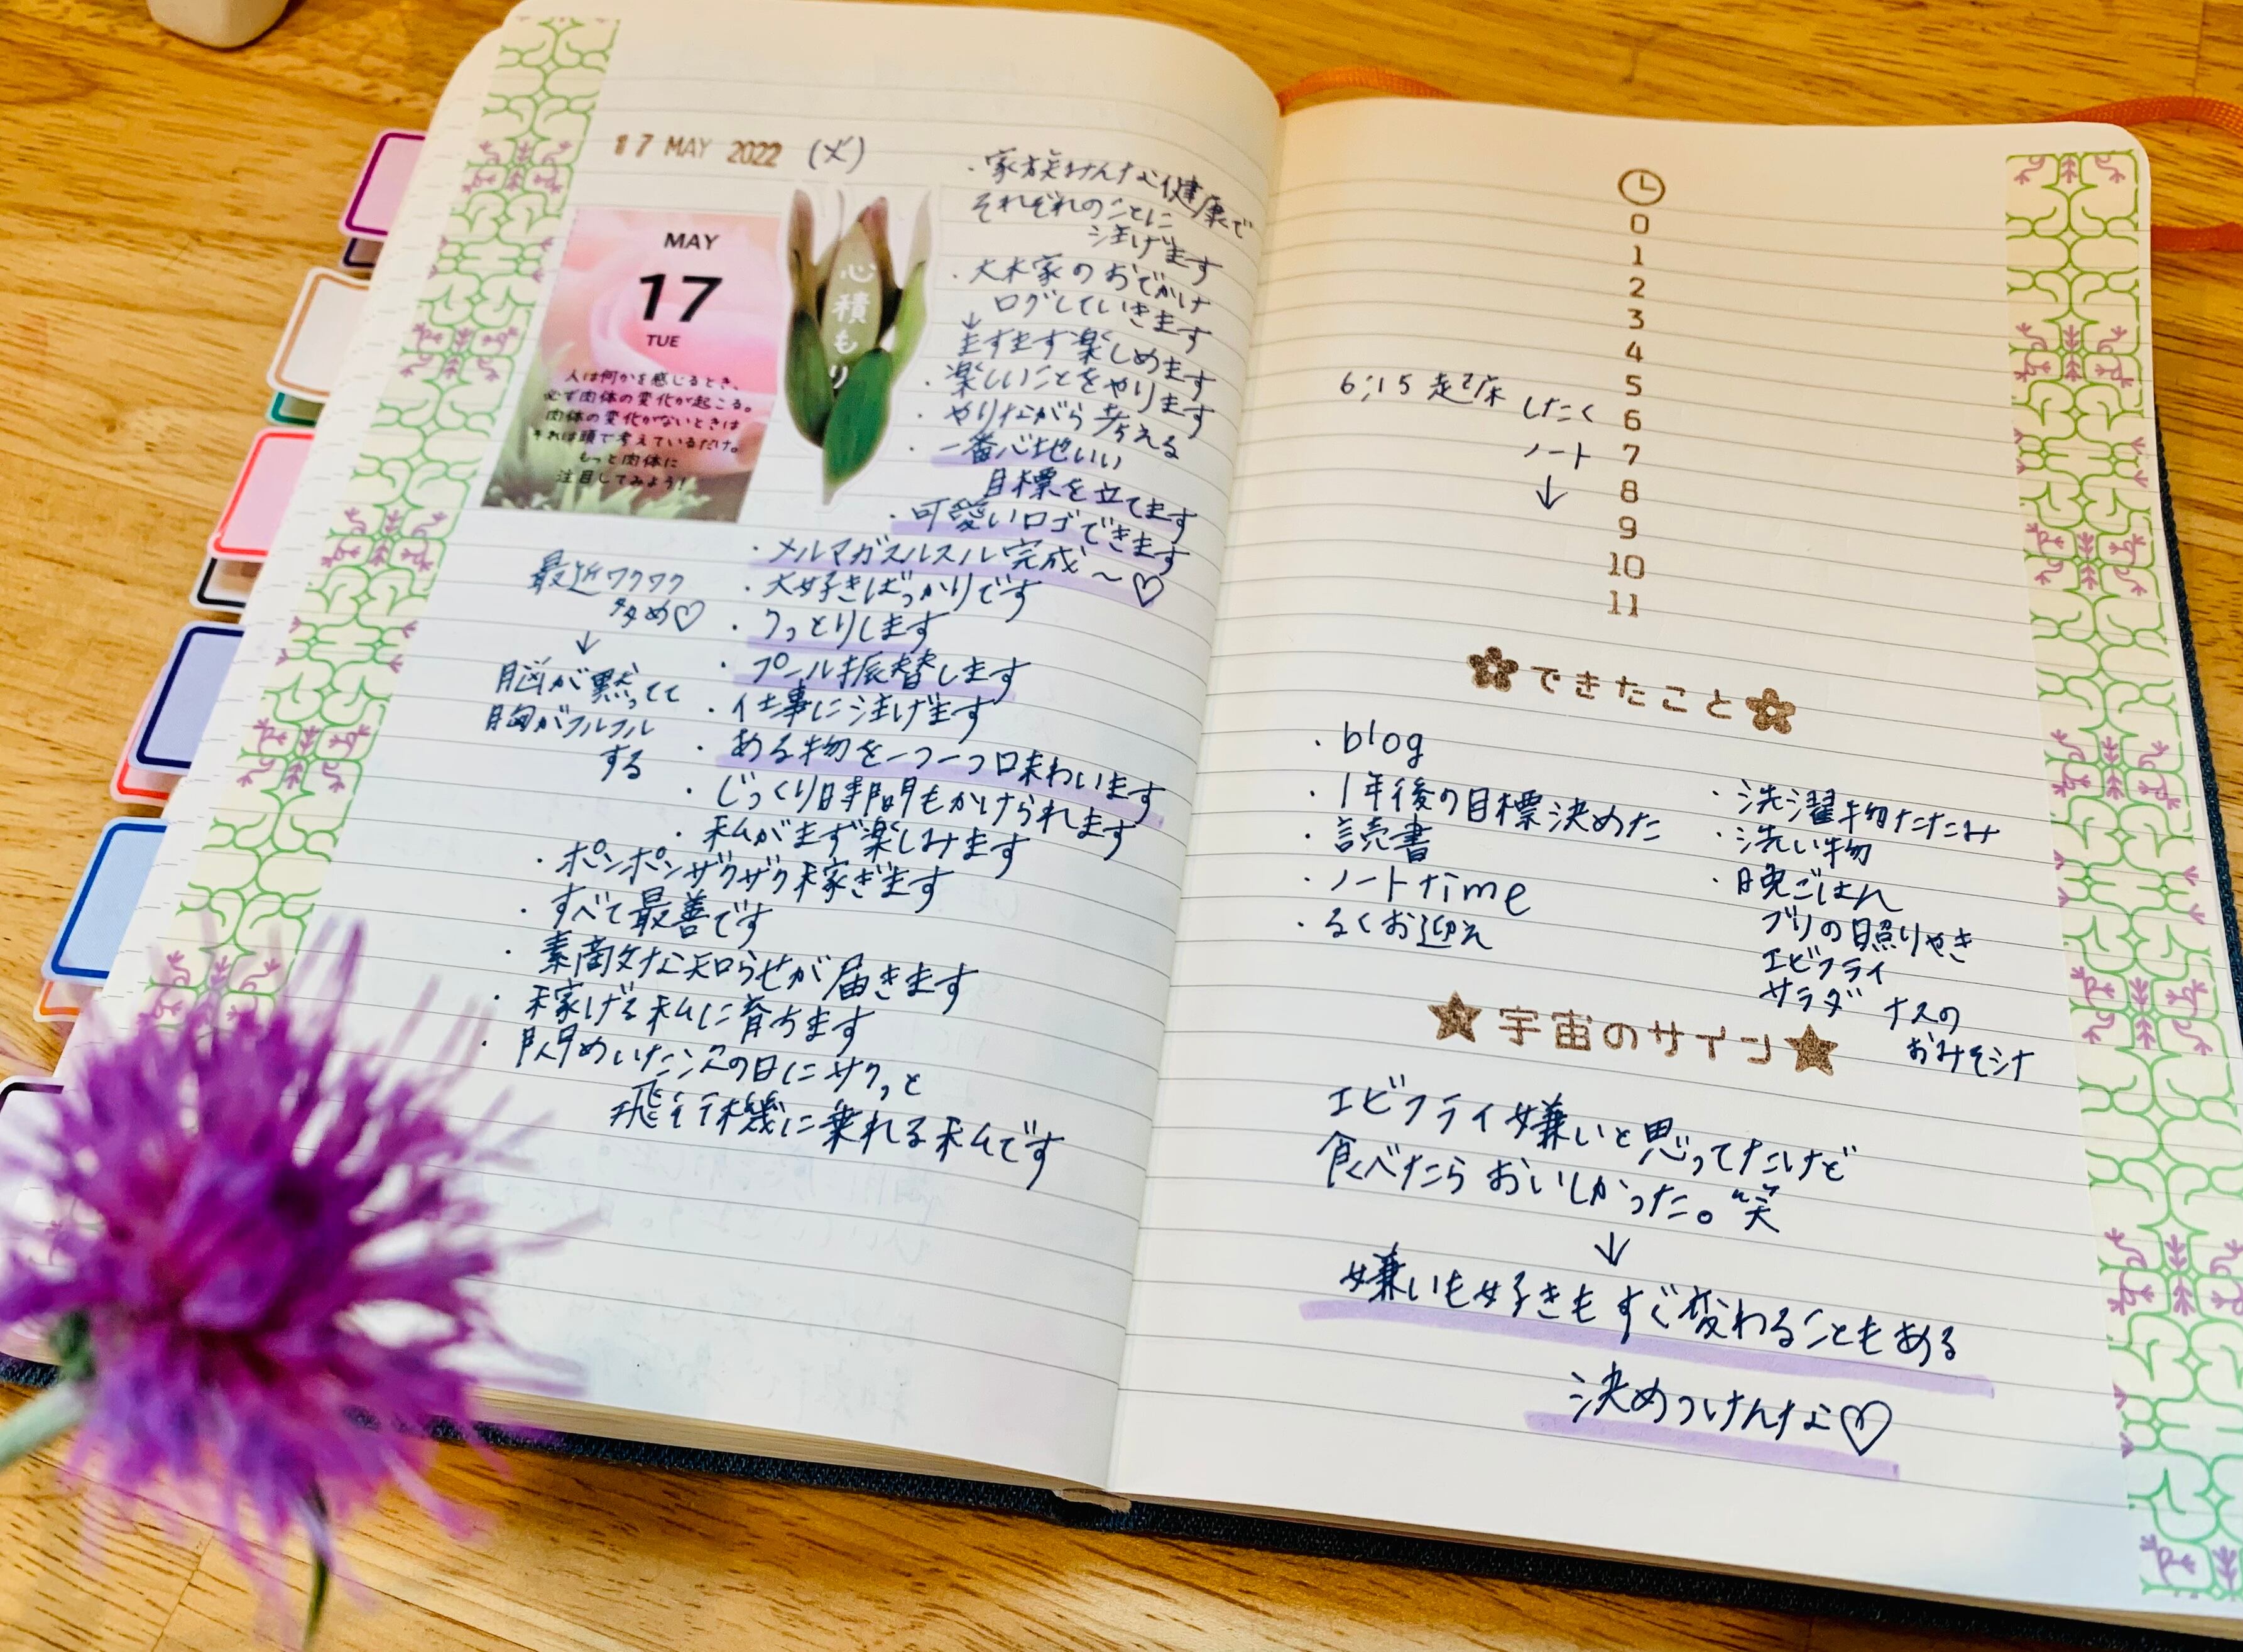 17 MAY 2022 (火)
MAY
17
TUE
人は何かを感じるとき、
必ず肉体の変化が起こる。
肉体の変化がないときは
それは頭で考えているだけ。
もっと肉体に
注目してみよう!
心積もり
・家族みんな健康で
それぞれのことに
注げます
・大木家のおでかけ
ログしていきます
↓
ますます楽しめます
・楽しいことをやります
・やりながら考える
・一番心地いい
目標を立てます
・可愛いロゴできます
・メルマガスルスル完成〜♡
・大好きばっかりです
・うっとりします
・プール振替します
・仕事に注げます
・ある物を一つ一つ味わいます
・じっくり時間もかけられます
・私がまず楽しみます
・ポンポンザクザク稼ぎます
・すべて最善です
・素敵な知らせが届きます
・稼げる私に育ちます
・閃めいた次の日にサクっと
飛行機に乗れる私です
最近ワクワク
多め♡
↓
脳が黙ってて
胸がフルフル
する
0
1
2
3
4
5
6:15 起床 したく 6
ノート 7
↓ 8
9
10
11
できたこと
・blog
・1年後の目標決めた
・読書
・ノートtime
・るくお迎え
・洗濯物たたみ
・洗い物
・晩ごはん
ブリの照りやき
エビフライ
サラダ ナスの
おみそシナ
★宇宙のサイン★
エビフライ嫌いと思ってたけど
食べたらおいしかった。笑
↓
嫌いも好きもすぐ変わることもある
決めつけんな♡